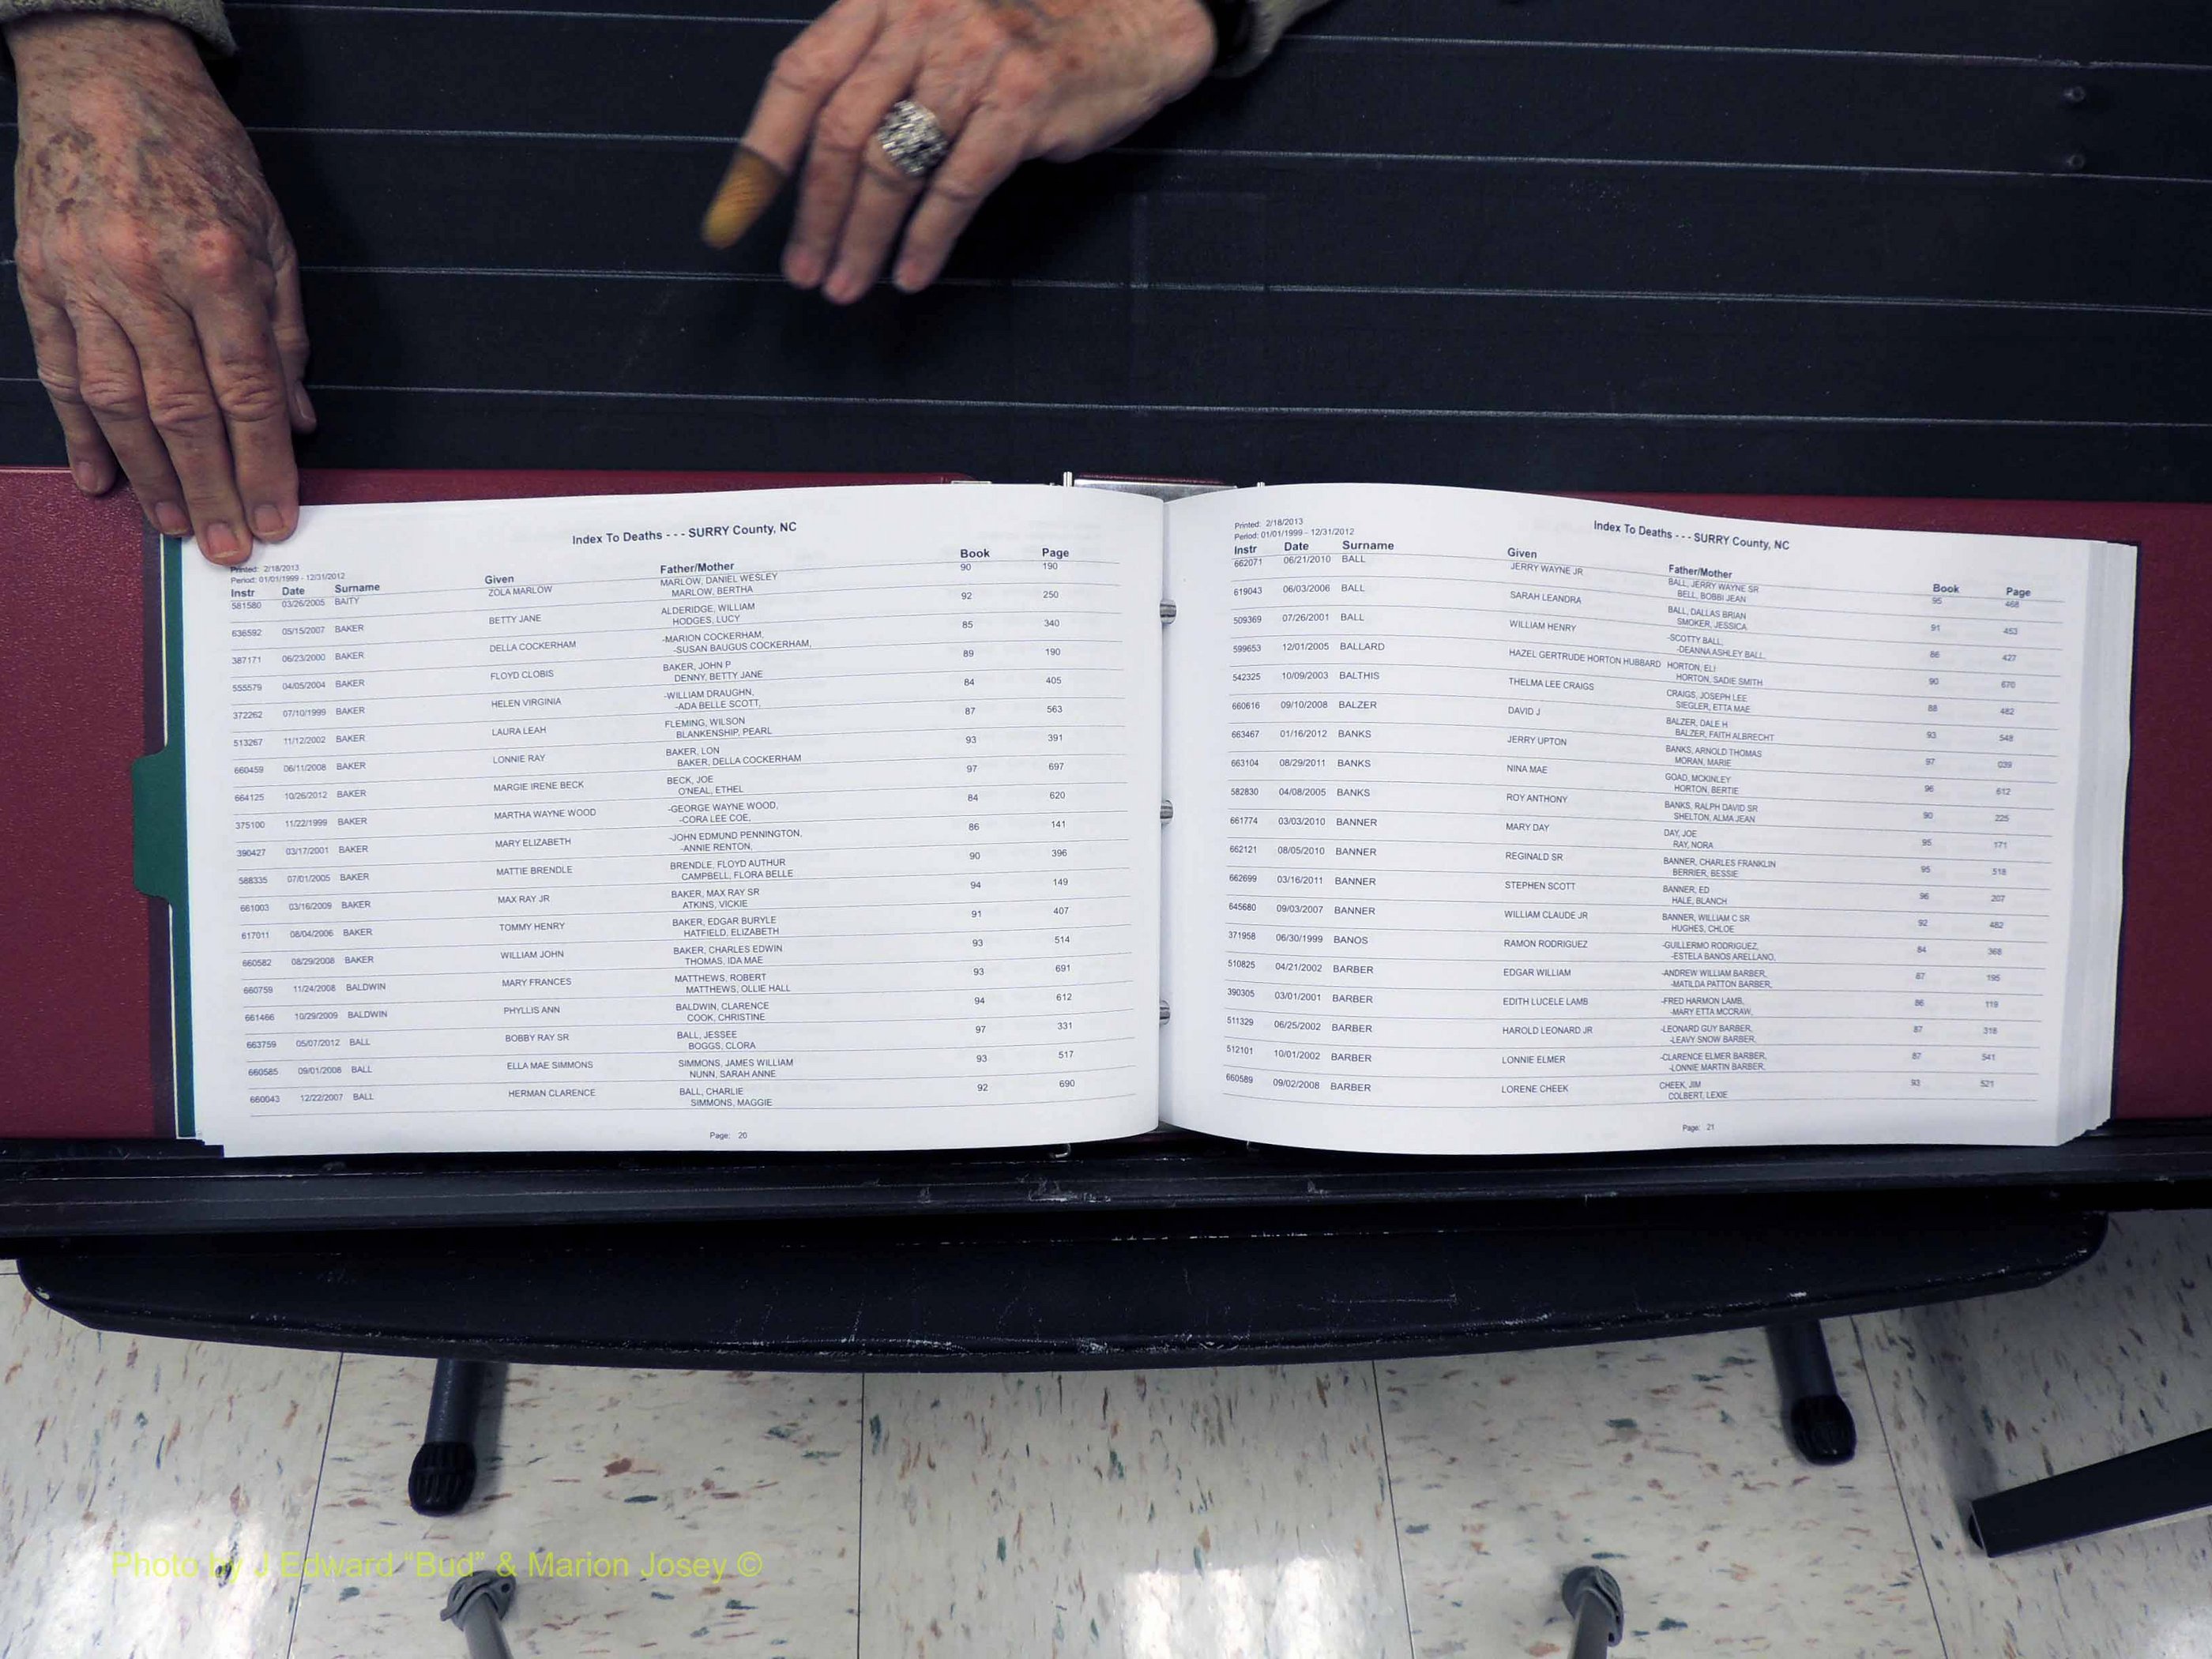 Index To Deaths - - - SURRY County, NC
Printed: 2/18/2013
Period: 01/01/1999 - 12/31/2012
Instr Date Surname Given Father/Mother Book Page
581580 03/26/2005 BAITY ZOLA MARLOW MARLOW, DANIEL WESLEY 90 190
MARLOW, BERTHA
636592 05/15/2007 BAKER BETTY JANE ALDERIDGE, WILLIAM 92 250
HODGES, LUCY
387171 06/23/2000 BAKER DELLA COCKERHAM -MARION COCKERHAM, 85 340
-SUSAN BAUGUS COCKERHAM,
555579 04/05/2004 BAKER FLOYD CLOBIS BAKER, JOHN P 89 190
DENNY, BETTY JANE
372262 07/10/1999 BAKER HELEN VIRGINIA -WILLIAM DRAUGHN, 84 405
-ADA BELLE SCOTT,
513267 11/12/2002 BAKER LAURA LEAH FLEMING, WILSON 87 563
BLANKENSHIP, PEARL
660459 06/11/2008 BAKER LONNIE RAY BAKER, LON 93 391
BAKER, DELLA COCKERHAM
664125 10/26/2012 BAKER MARGIE IRENE BECK BECK, JOE 97 697
O'NEAL, ETHEL
375100 11/22/1999 BAKER MARTHA WAYNE WOOD -GEORGE WAYNE WOOD, 84 620
-CORA LEE COE,
390427 03/17/2001 BAKER MARY ELIZABETH -JOHN EDMUND PENNINGTON, 86 141
-ANNIE RENTON,
588335 07/01/2005 BAKER MATTIE BRENDLE BRENDLE, FLOYD AUTHUR 90 396
CAMPBELL, FLORA BELLE
661003 03/16/2009 BAKER MAX RAY JR BAKER, MAX RAY SR 94 149
ATKINS, VICKIE
617011 08/04/2006 BAKER TOMMY HENRY BAKER, EDGAR BURYLE 91 407
HATFIELD, ELIZABETH
660582 08/29/2008 BAKER WILLIAM JOHN BAKER, CHARLES EDWIN 93 514
THOMAS, IDA MAE
660759 11/24/2008 BALDWIN MARY FRANCES MATTHEWS, ROBERT 93 691
MATTHEWS, OLLIE HALL
661466 10/29/2009 BALDWIN PHYLLIS ANN BALDWIN, CLARENCE 94 612
COOK, CHRISTINE
663759 05/07/2012 BALL BOBBY RAY SR BALL, JESSEE 97 331
BOGGS, CLORA
660585 09/01/2008 BALL ELLA MAE SIMMONS SIMMONS, JAMES WILLIAM 93 517
NUNN, SARAH ANNE
660043 12/22/2007 BALL HERMAN CLARENCE BALL, CHARLIE 92 690
SIMMONS, MAGGIE
Page: 20
Printed: 2/18/2013
Period: 01/01/1999 - 12/31/2012
Index To Deaths - - - SURRY County, NC
Instr Date Surname Given Father/Mother Book Page
662071 06/21/2010 BALL JERRY WAYNE JR BALL, JERRY WAYNE SR 95 468
BELL, BOBBI JEAN
619043 06/03/2006 BALL SARAH LEANDRA BALL, DALLAS BRIAN 91 453
SMOKER, JESSICA
509369 07/26/2001 BALL WILLIAM HENRY -SCOTTY BALL, 86 427
-DEANNA ASHLEY BALL,
599653 12/01/2005 BALLARD HAZEL GERTRUDE HORTON HUBBARD HORTON, ELI 90 670
HORTON, SADIE SMITH
542325 10/09/2003 BALTHIS THELMA LEE CRAIGS CRAIGS, JOSEPH LEE 88 482
SIEGLER, ETTA MAE
660616 09/10/2008 BALZER DAVID J BALZER, DALE H 93 548
BALZER, FAITH ALBRECHT
663467 01/16/2012 BANKS JERRY UPTON BANKS, ARNOLD THOMAS 97 039
MORAN, MARIE
663104 08/29/2011 BANKS NINA MAE GOAD, MCKINLEY 96 612
HORTON, BERTIE
582830 04/08/2005 BANKS ROY ANTHONY BANKS, RALPH DAVID SR 90 225
SHELTON, ALMA JEAN
661774 03/03/2010 BANNER MARY DAY DAY, JOE 95 171
RAY, NORA
662121 08/05/2010 BANNER REGINALD SR BANNER, CHARLES FRANKLIN 95 518
BERRIER, BESSIE
662699 03/16/2011 BANNER STEPHEN SCOTT BANNER, ED 96 207
HALE, BLANCH
645680 09/03/2007 BANNER WILLIAM CLAUDE JR BANNER, WILLIAM C SR 92 482
HUGHES, CHLOE
371958 06/30/1999 BANOS RAMON RODRIGUEZ -GUILLERMO RODRIGUEZ, 84 368
-ESTELA BANOS ARELLANO,
510825 04/21/2002 BARBER EDGAR WILLIAM -ANDREW WILLIAM BARBER, 87 195
-MATILDA PATTON BARBER,
390305 03/01/2001 BARBER EDITH LUCELE LAMB -FRED HARMON LAMB, 86 119
-MARY ETTA MCCRAW,
511329 06/25/2002 BARBER HAROLD LEONARD JR -LEONARD GUY BARBER, 87 318
-LEAVY SNOW BARBER,
512101 10/01/2002 BARBER LONNIE ELMER -CLARENCE ELMER BARBER, 87 541
-LONNIE MARTIN BARBER,
660589 09/02/2008 BARBER LORENE CHEEK CHEEK, JIM 93 521
COLBERT, LEXIE
Page: 21
Photo by J Edward "Bud" & Marion Josey ©